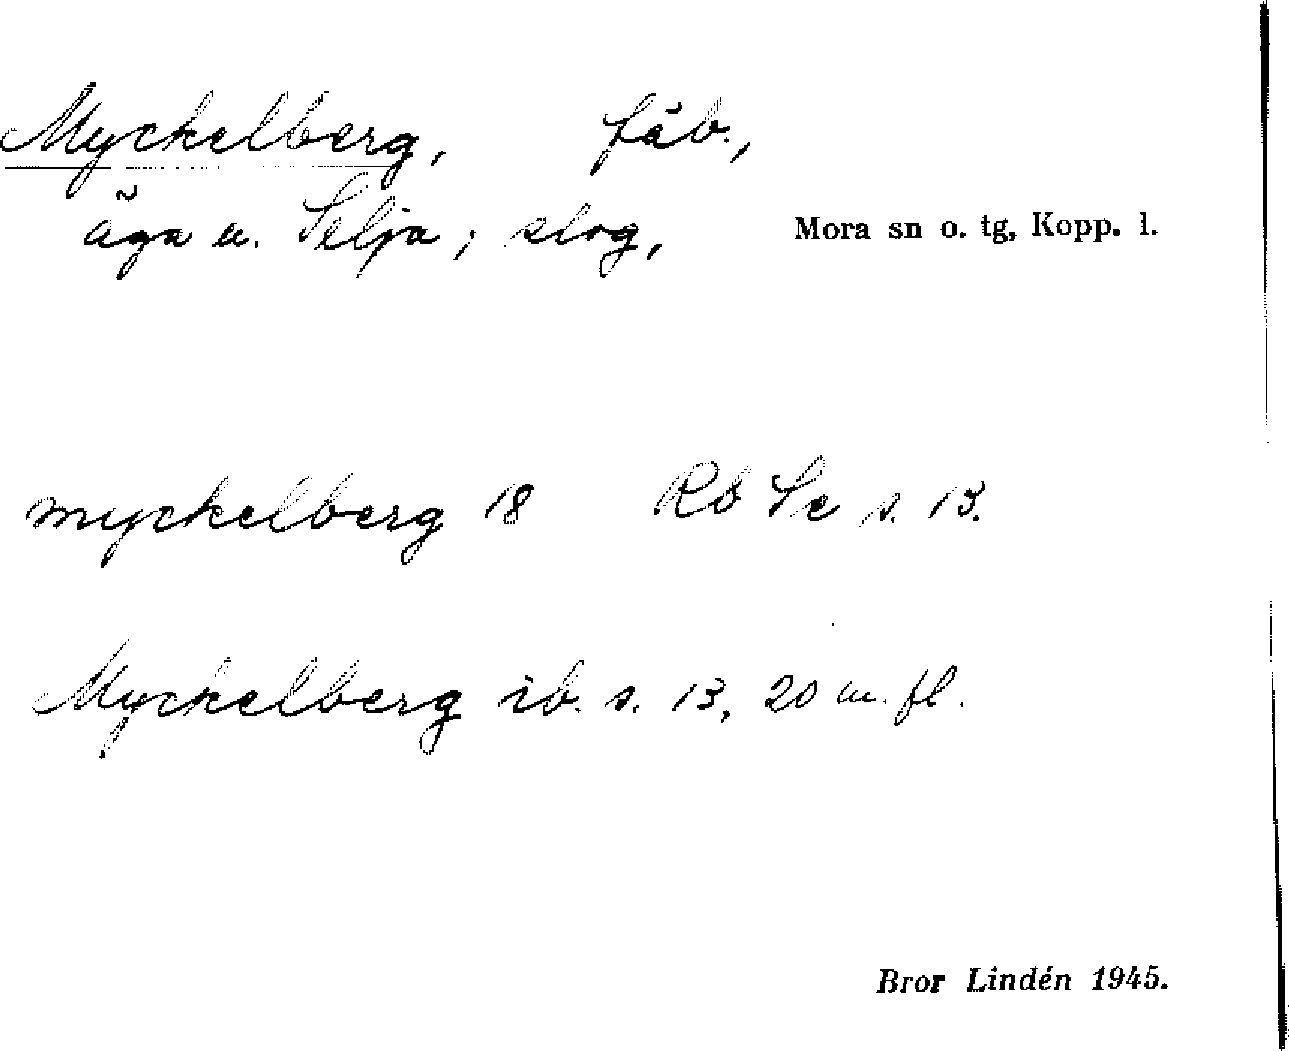 Myckelberg, fäb.,
äga u. Selja; slog, Mora sn o. tg, Kopp. l.
myckelberg 18 Rb Se s. 13.
Myckelberg ib. s. 13, 20 m. fl.
Bror Lindén 1945.